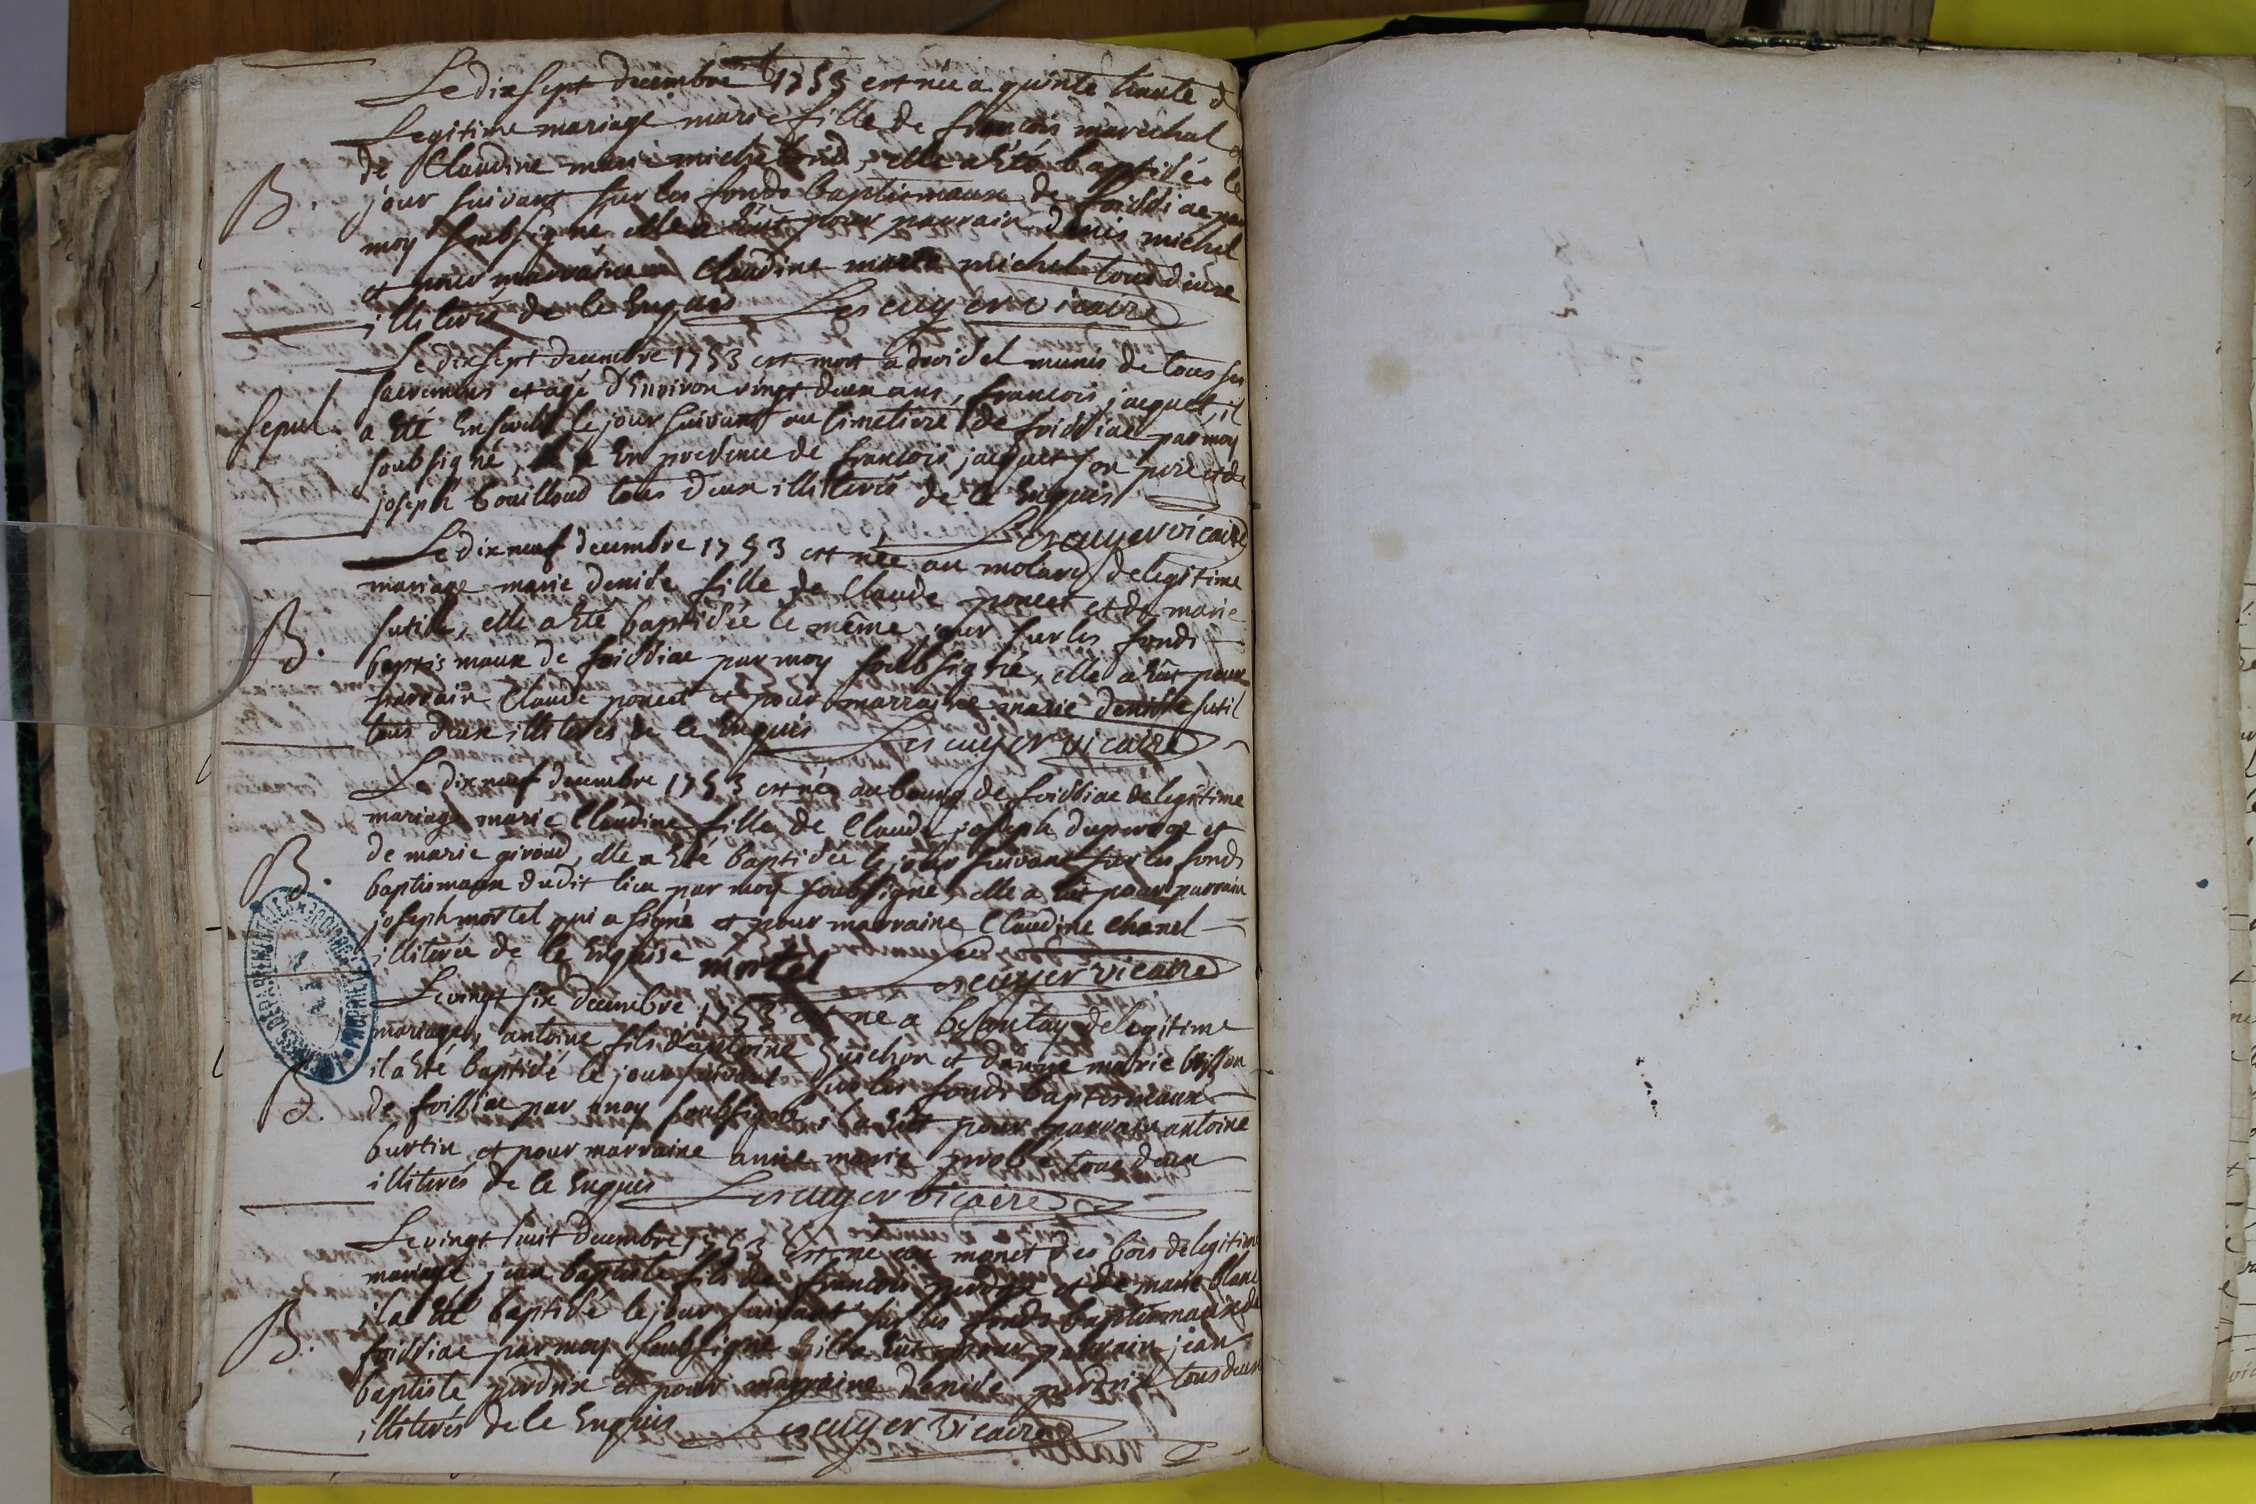 Le dix sept decembre 1753 est née a quinte tante de
Legitime mariage marie fille de françois marechal et
de Claudine marie michel, elle a Eté baptisée le
B. jour suivant sur les fonds baptismaux de foissiac par
moy soubsigné elle a Eût pour parrain denis michel
et pour marraine Claudine marie michel tous deux
illiterés de ce Enquis Lescuyer vicaire
Le dix sept decembre 1753 est mort a munis de tous ses
sacremens et agé d'Environ vingt deux ans, françois jacquet, il
Sepul. a Eté Enseveli le jour suivant au cimetiere de foissiac par moy
soubsigné, En presence de françois jacquet son pere et de
joseph bouilloud tous deux illiterés de ce Enquis
Lescuyer vicaire
Le dix neuf decembre 1753 est née au molard de legitime
mariage marie denise fille de Claude poncet et de marie
B. sutil, elle a Eté baptisée le même jour sur les fonds
baptismaux de foissiac par moy soubsigné, elle a Eût pour
parrain Claude poncet et pour marraine marie denise sutil
tous deux illiterés de ce Enquis Lescuyer vicaire
Le dix neuf decembre 1753 est née au bourg de foissiac de legitime
mariage marie Claudine fille de Claude joseph et
de marie giroud, elle a Eté baptisée le jour suivant sur les fonds
B. baptismaux dudit lieu par moy soubsigné, elle a Eût pour parrain
joseph mortel qui a signé et pour marraine Claudine chanel
illiterée de ce Enquise mortel Lescuyer vicaire
Le vingt six decembre 1753 est né a besantay de legitime
mariage, antoine fils d'antoine guichon et d'anne marie buisson
il a Eté baptisé le jour suivant sur les fonds baptismaux
B. de foissiac par moy soubsigné, il a Eût pour parrain antoine
burtin et pour marraine anne marie probé tous deux
illiterés de ce Enquis Lescuyer vicaire
Le vingt huit decembre 1753 est né au manet des bois de legitime
mariage jean baptiste fils de françois perdrix et de marie blanc
il a Eté baptisé le jour suivant sur les fonds baptismaux de
B. foissiac par moy soubsigné il a Eût pour parrain jean
baptiste perdrix et pour marraine denise perdrix tous deux
illiterés de ce Enquis Lescuyer vicaire